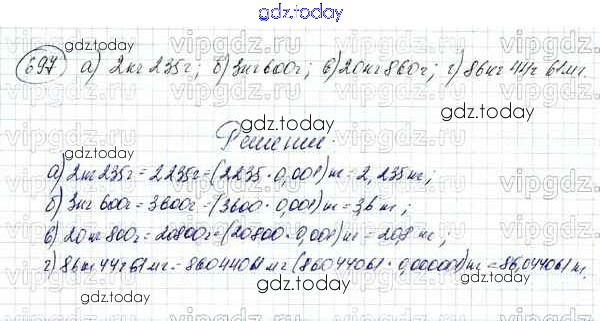 gdz.today
697) а) 2кг 235г; б) 3кг 600г; в) 20кг 860г; г) 86кг 44г 61мг.
gdz.today
Решение.
а) 2кг 235г = 2235г = (2235 · 0,001) кг = 2,235 кг;
б) 3кг 600г = 3600г = (3600 · 0,001) кг = 3,6 кг;
в) 20кг 800г = 20800г = (20800 · 0,001) кг = 20,8 кг;
г) 86кг 44г 61мг = 86044061 мг (86044061 · 0,000001) кг = 86,044061 кг.
gdz.today